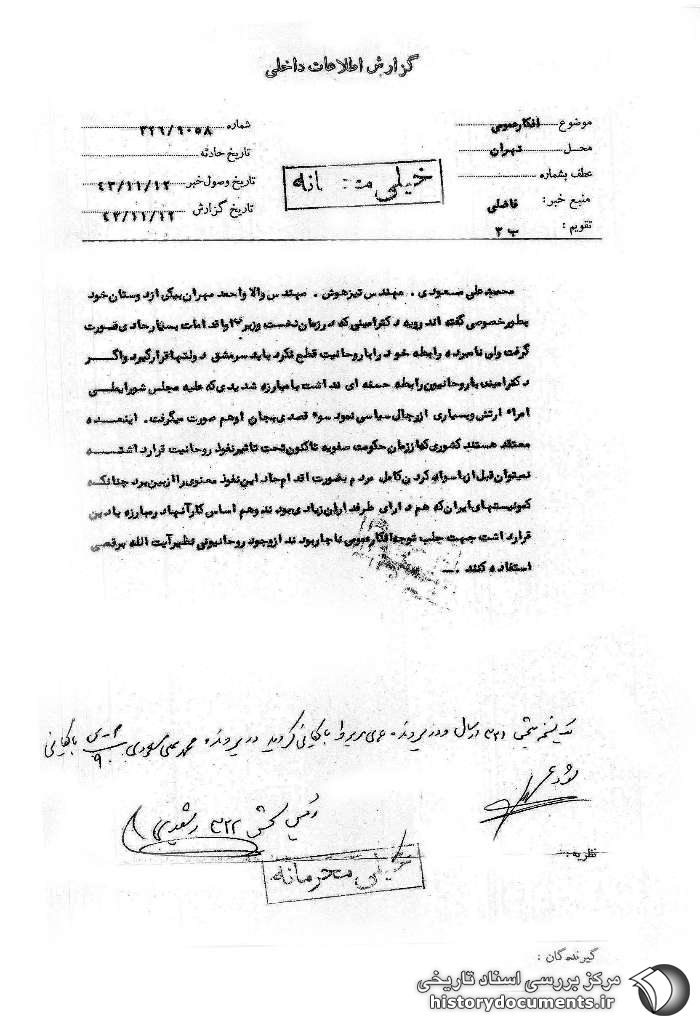 گزارش اطلاعات داخلی
موضوع افکارعمومی
محل تهران
عطف بشماره
منبع خبر: فاضلی
تقویم: ب ۲
شماره ۳۲۶/۹۰۵۸
تاریخ حادثه
تاریخ وصول خبر ۴۳/۱۱/۱۲
تاریخ گزارش ۴۳/۱۱/۱۲
خیلی م انه
محمدعلی مسعودی . مهندس تیزهوش . مهندس والا واحمد مهران یکی ازدوستان خود
بطورخصوصی گفته اند رویه دکترامینی که درزمان نخست وزیری اواقدامات بسیارحادی صورت
گرفت ولی نامبرده رابطه خود راباروحانیت قطع نکرد بایدسرمشق دولتهاقرارگیرد واگر
دکترامینی باروحانیون رابطه حسنه ای نداشت بامبارزه شدیدی که علیه مجلس شورابطی
امراء ارتش وبسیاری ازرجال سیاسی نمود سوء قصدی بجان اوهم صورت میگرفت. اینعده
معتقد هستند کشوری که اززمان حکومت صفویه تاکنون تحت تاثیرنفوذ روحانیت قرارداشته
نمیتوان قبل ازباسواد کردن کامل مردم بصورت اقدام حاد این نفوذ معنوی راازبین برد چنانکه
کمونیستهای ایران که هم دارای طرفداران زیادی بودند وهم اساس کارآنهادرمبارزه بادین
قرارداشت جهت جلب توجه افکارعمومی ناچاربودند ازوجود روحانیونی نظیرآیت الله برقعی
استفاده کنند .
در پرونده محمد علی مسعودی بایگانی
رئیس بخش ۳۲۲ رشیدی
خیلی محرمانه
نظریه:
گیرندگان :
مرکز بررسی اسناد تاریخی
historydocuments.ir